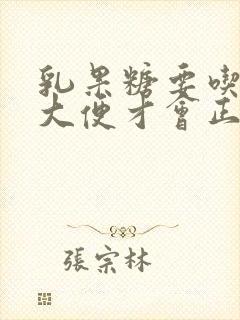 乳果糖要喫
大便才會正
張宗林